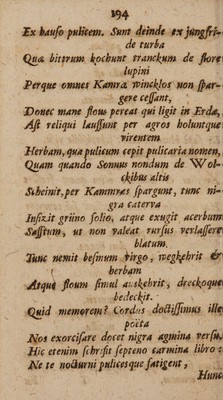 194
Ex hauso pulicem. Sunt deinde ex jüngfri-
de turba
Qua bittrum kochunt tranckum de flore
lupini
Perque omnes Kamra wincklos non spar-
gere cessant,
Donec mane flous pereat qui ligit in Erda,
Ast reliqui lauffunt per agros holuntque
virentem
Herbam, qua pulicum cepit pulicaria nomen,
Quam quando Sonnus nondum de Wol-
ckibus altis
Scheinit, per Kammras spargunt, tunc ni-
gra caterva
Infixit grüno folio, atque exugit acerbum
Safftum, ut non valeat rursus verlassere
blatum.
Tunc nemit besmum virgo, wegkehrit &
herbam
Atque floum simul auskehrit, dreckoque
bedeckit.
Quid memorem? Cordus doctissimus ille
poëta
Nos exorcisare docet nigra agmina versu,
Hic etenim schrifit septeno carmina libro:
Ne te nocturni pulicesque fatigent,
Hunc